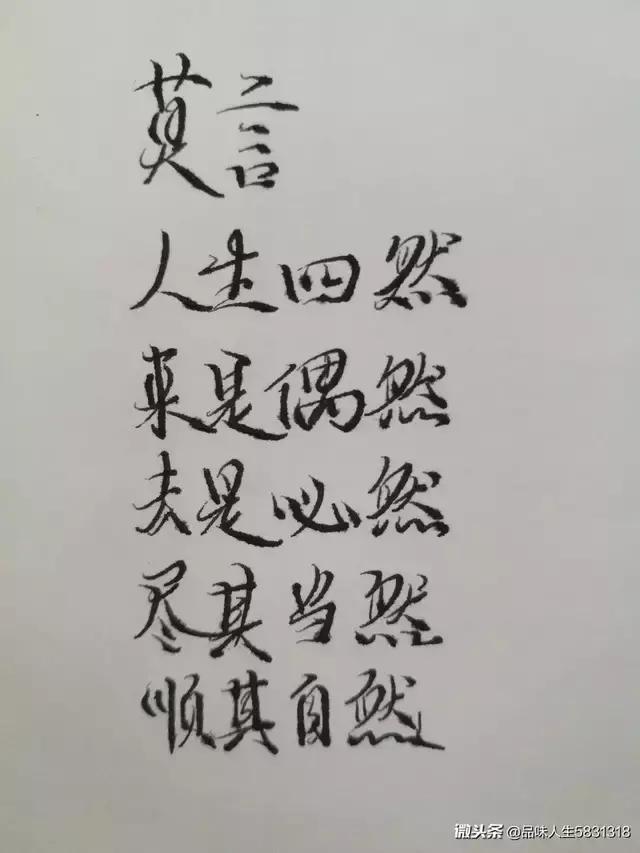 莫言
人生四然
来是偶然
去是必然
尽其当然
顺其自然
微头条 @品味人生5831318